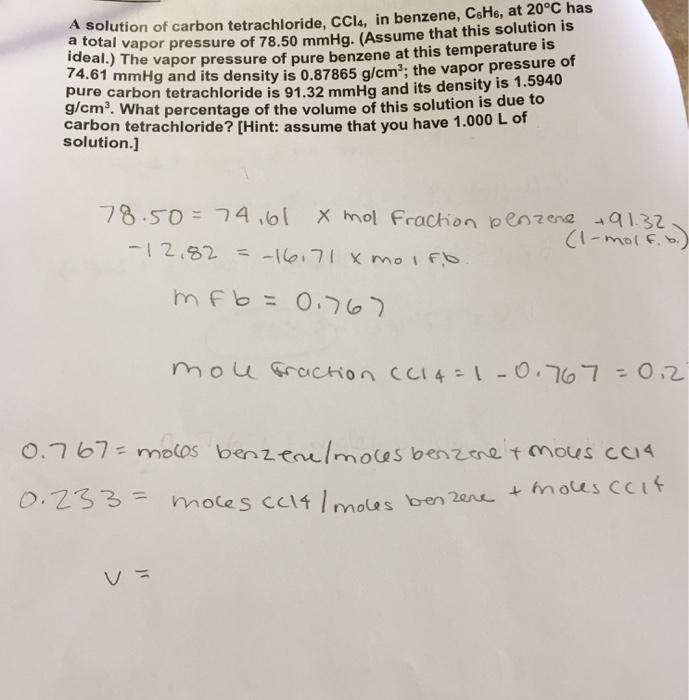 A solution of carbon tetrachloride, CCl₄, in benzene, C₆H₆, at 20°C has
a total vapor pressure of 78.50 mmHg. (Assume that this solution is
ideal.) The vapor pressure of pure benzene at this temperature is
74.61 mmHg and its density is 0.87865 g/cm³; the vapor pressure of
pure carbon tetrachloride is 91.32 mmHg and its density is 1.5940
g/cm³. What percentage of the volume of this solution is due to
carbon tetrachloride? [Hint: assume that you have 1.000 L of
solution.]
78.50 = 74.61 x mol fraction benzene +91.32
(1-mol f.b.)
-12.82 = -16.71 x mol f.b.
mfb = 0.767
mole fraction CCl4 = 1 - 0.767 = 0.2
0.767 = moles benzene/moles benzene + moles CCl4
0.233 = moles CCl4 / moles benzene + moles CCl4
V =